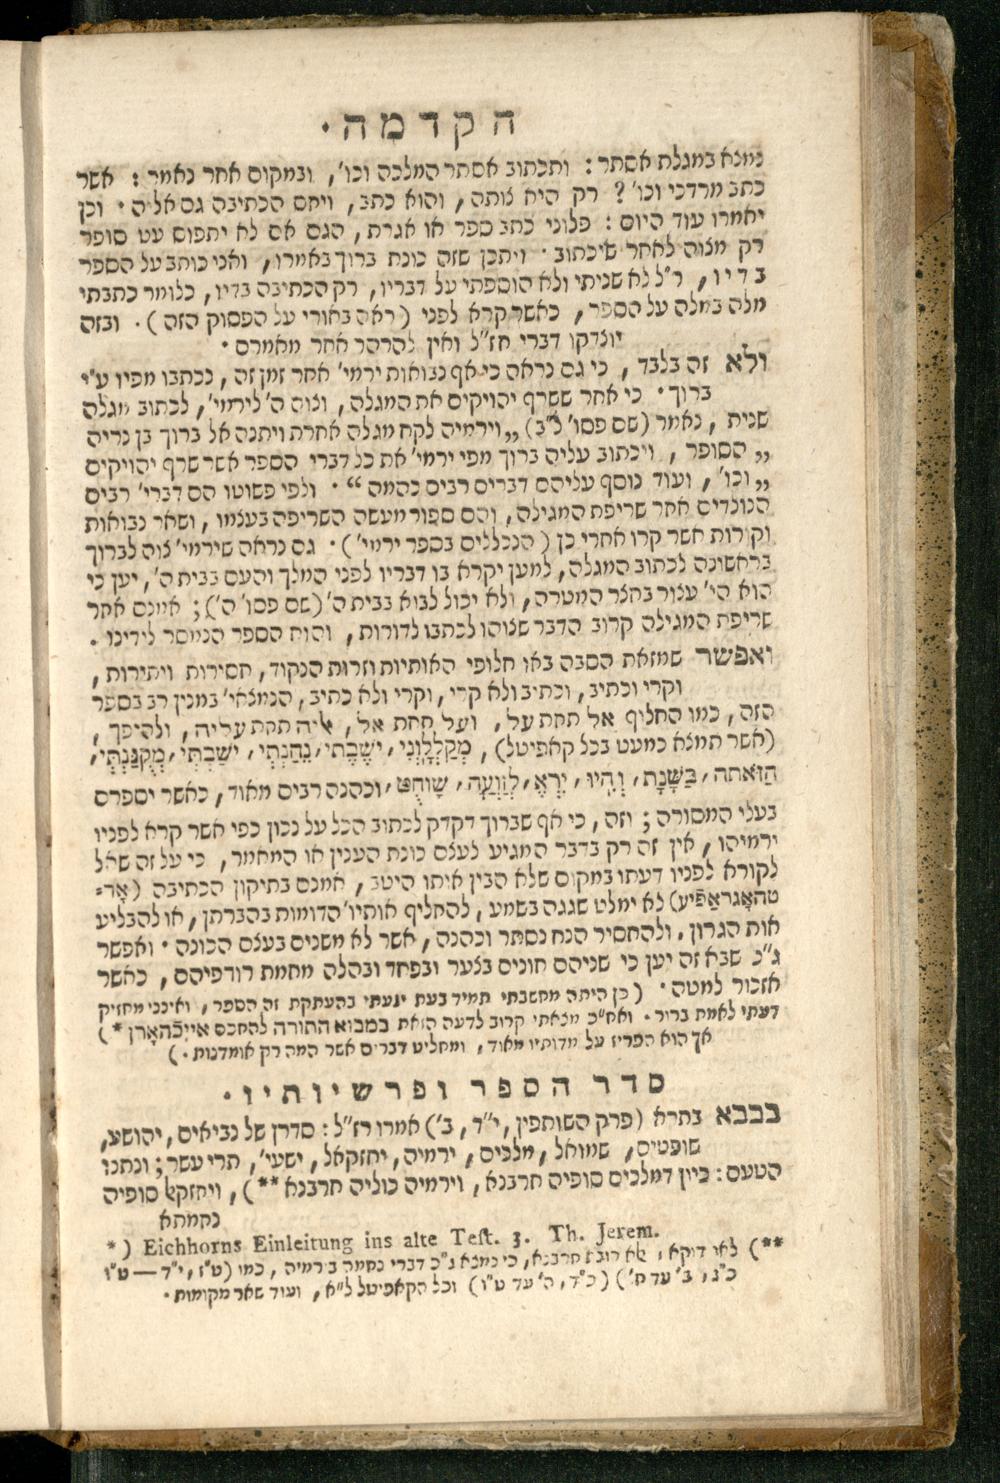 הקדמה·
נמצא במגלת אסתר: ותכתוב אסתר המלכה וכו', ובמקום אחר נאמר: אשר
כתב מרדכי וכו'? רק היא צותה, והוא כתב, ויחס הכתיבה גם אליה· וכן
יאמרו עוד היום: פלוני כתב ספר או אגרת, הגם אם לא יתפוס עט סופר
רק מצוה לאחר שיכתוב· ויתכן שזה כונת ברוך באמרו, ואני כותב על הספר
בדיו, ר"ל לא שניתי ולא הוספתי על דבריו, רק הכתיבה בדיו, כלומר כתבתי
מלה במלה על הספר, כאשר קרא לפני (ראה באורי על הפסוק הזה)· ובזה
יוצדקו דברי חז"ל ואין להרהר אחר מאמרם·
ולא זה בלבד, כי גם נראה כי אף נבואות ירמי' אחר זמן זה, נכתבו מפיו ע"י
ברוך· כי אחר ששרף יהויקים את המגלה, וצוה ה' לירמי', לכתוב מגלה
שנית, נאמר (שם פסו' ל"ב) „וירמיה לקח מגלה אחרת ויתנה אל ברוך בן נריה
„הסופר, ויכתוב עליה ברוך מפי ירמי' את כל דברי הספר אשר שרף יהויקים
„וכו', ועוד נוסף עליהם דברים רבים כהמה“· ולפי פשוטו הם דברי' רבים
הנולדים אחר שריפת המגילה, והם ספור מעשה השריפה בעצמו, ושאר נבואות
וקורות אשר קרו אחרי כן (הנכללים בספר ירמי')· גם נראה שירמי' צוה לברוך
בראשונה לכתוב המגלה, למען יקרא בו דבריו לפני המלך והעם בבית ה', יען כי
הוא הי' עצור בחצר המטרה, ולא יכול לבוא בבית ה' (שם פסו' ה'); אמנם אחר
שריפת המגילה קרוב הדבר שצוהו לכתבו לדורות, והוא הספר הנמסר לידינו.
ואפשר שמזאת הסבה באו חלופי האותיות וזרות הנקוד, חסירות ויתירות,
וקרי וכתיב, וכתיב ולא קרי, וקרי ולא כתיב, הנמצאי' במנין רב בספר
הזה, כמו החליף אל תחת על, ועל תחת אל, אליה תחת עליה, ולהיפך,
(אשר תמצא כמעט בכל קאפיטל), מְקַלְלַוְנִי, יֹשֶׁבֶתי, נֶחַנְתְּי, יֹשַבְתִּי, מְקֻנַּנְתְּי,
הַזֹּאתה, בַּשָּׁנָת, וְהָיוּ, יִרָא, לְזַוְעָה, שָׁוחֻט, וכהנה רבים מאוד, כאשר יספרם
בעלי המסורה; וזה, כי אף שברוך דקדק לכתוב הכל על נכון כפי אשר קרא לפניו
ירמיהו, אין זה רק בדבר המגיע לעצם כונת הענין או המאמר, כי על זה שאל
לקורא לפניו דעתו במקום שלא הבין איתו היטב, אמנם בתיקון הכתיבה (אָר=
טהאָגראַפֿיע) לא ימלט שגגה בשמע, להחליף אותיו' הדומות בהברתן, או להבליע
אות הגרון, ולהחסיר הנח נסתר וכהנה, אשר לא משנים בעצם הכונה· ואפשר
ג"כ שבא זה יען כי שניהם חונים בצער ובפחד ובהלה מחמת רודפיהם, כאשר
אזכור למטה· (כן היתה מחשבתי תמיד בעת יגעתי בהעתקת זה הספר, ואינני מחזיק
דעתי לאמת ברור· ואח"כ מצאתי קרוב לדעה הזאת במבוא התורה להחכם אייכֿהאָרן *)
אך הוא הפריז על מדותיו מאוד, ומחליט דברים אשר המה רק אומדנות·)
סדר הספר ופרשיותיו·
בבבא בתרא (פרק השותפין, י"ד, ב') אמרו רז"ל: סדרן של נביאים, יהושע,
שופטים, שמואל, מלכים, ירמיה, יחזקאל, ישעי', תרי עשר; ונתנו
הטעם: כיון דמלכים סופיה חרבנא, וירמיה כוליה חרבנא **), ויחזקל סופיה
נחמתא
*) Eichhorns Einleitung ins alte Test. 3. Th. Jerem.
**) לאו דוקא, רובא חרבנא, כי נמצא ג"כ דברי נחמה בירמיה, כמו (ט"ז, י"ד — ט"ו
כ"ג, ב' עד ח') (כ"ד, ה' עד ט"ו) וכל הקאפיטל ל"א, ועוד שאר מקומות·